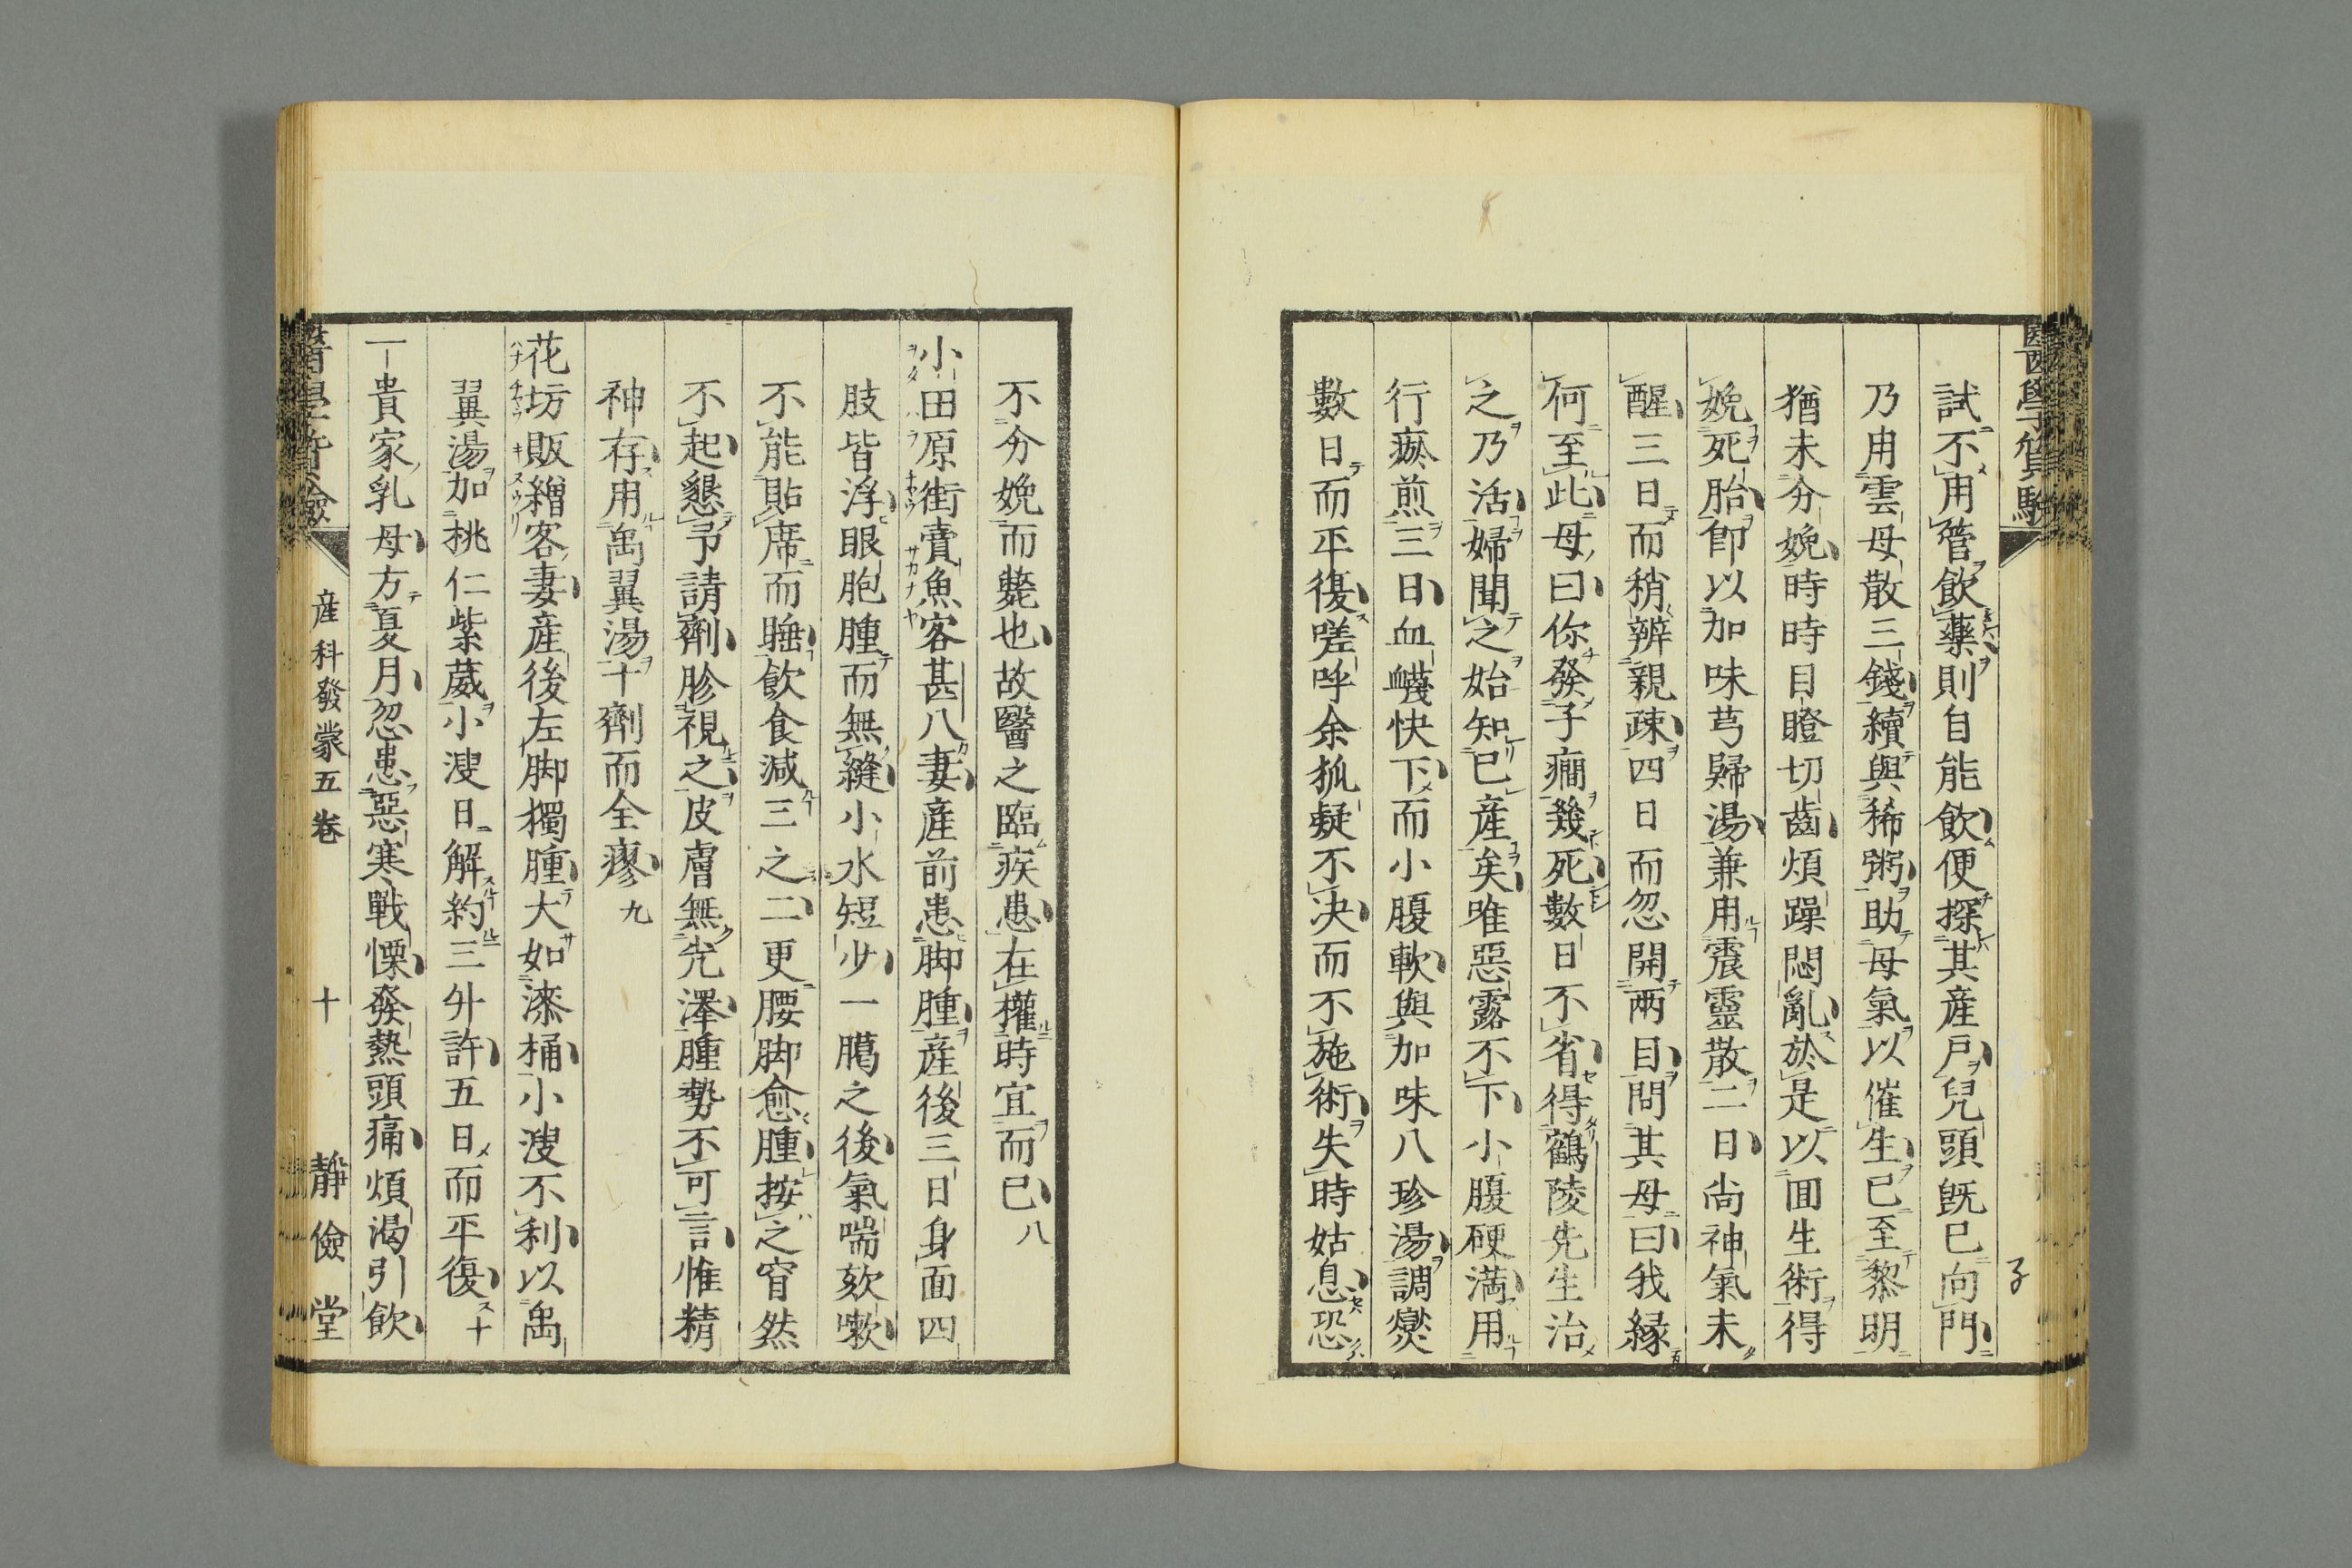 試不用管飲藥則自能飲便探其産戸兒頭既已向門
乃用雲母散三錢續與稀粥助母氣以催生已至黎明
猶未分娩時時目瞪切齒煩躁悶亂於是以回生術得
娩死胎卽以加味芎歸湯兼用震靈散二日尚神氣未
醒三日而稍辨親疎四日而忽開兩目問其母曰我縁
何至此母曰你發子癇幾死數日不省得鶴陵先生治
之乃活婦聞之始知已産矣唯惡露不下小腹硬満用
行瘀煎三日血衊快下而小腹軟與加味八珍湯調爕
數日而平復嗟呼余狐疑不決而不施術失時姑息恐
不分娩而斃也故醫之臨疾患在權時宜而已八
小田原街賣魚客甚八妻産前患脚腫産後三日身面四
肢皆浮眼胞腫而無縫小水短少一臈之後氣喘欬嗽
不能貼席而睡飲食減三之二更腰脚愈腫按之窅然
不起懇予請劑胗視之皮膚無光澤腫勢不可言惟精
神存用禹翼湯十劑而全瘳九
花坊販繒客妻産後左脚獨腫大如漆桶小溲不利以禹
翼湯加桃仁紫葳小溲日解約三升許五日而平復十
一貴家乳母方夏月忽患惡寒戰慄發熱頭痛煩渇引飲
産科發蒙五卷 十 靜儉堂